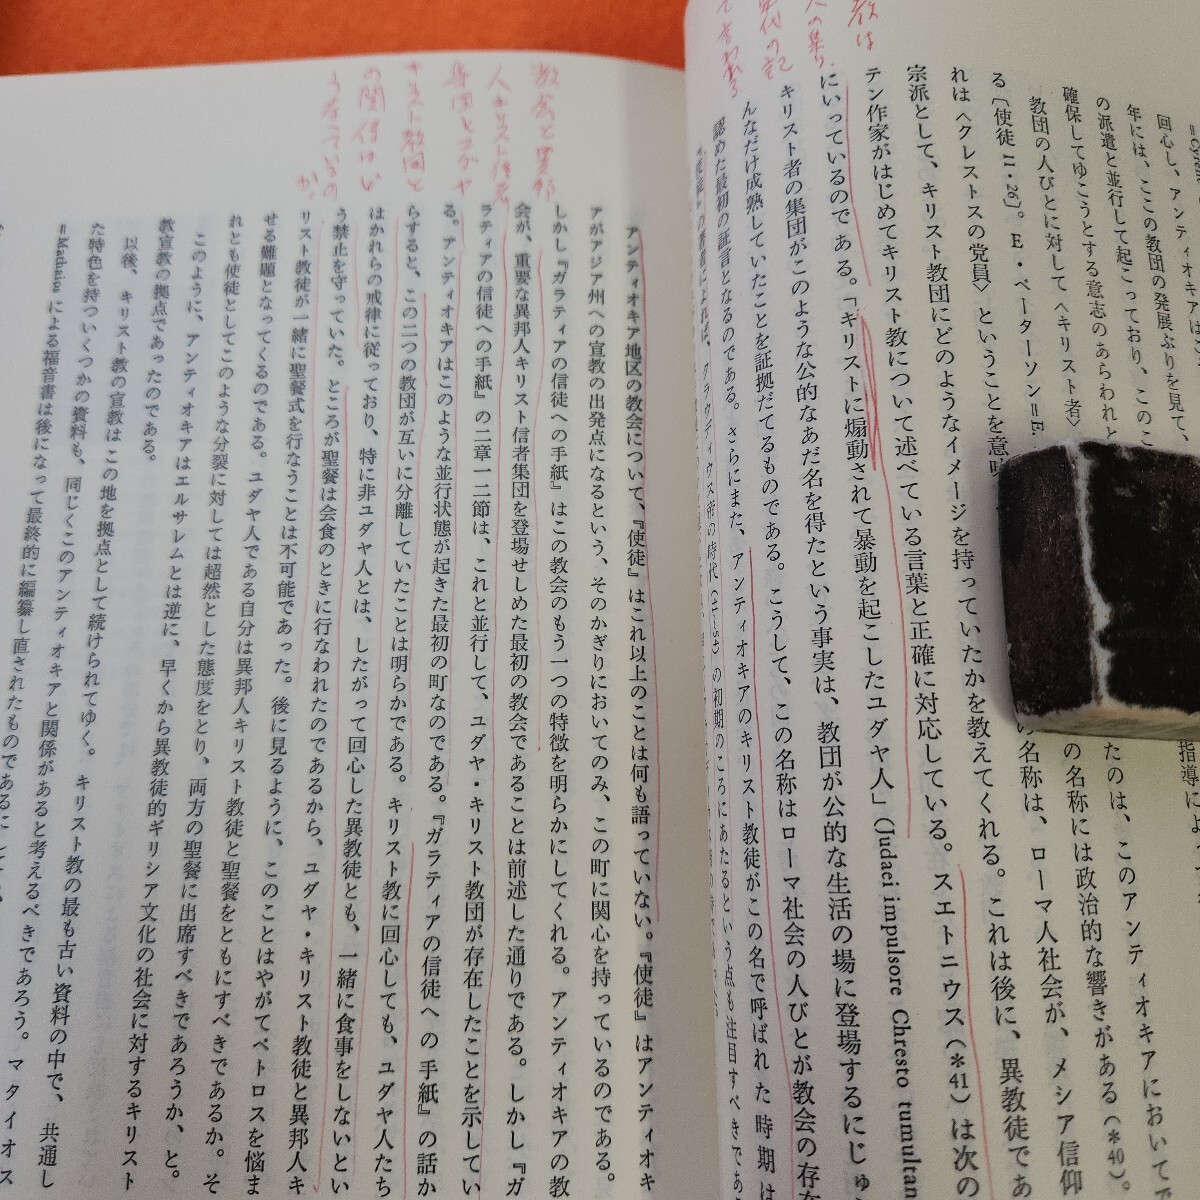 回心し、アンティオキアは
年には、ここの教団の発展ぶりを見て、
の派遣と並行して起こっており、このこ
確保してゆこうとする意志のあらわれと
教団の人びとに対して〈キリスト者〉
る〔使徒11・26〕。E・ペーターソン=E.
れは〈クレストスの党員〉ということを意味
宗派として、キリスト教団にどのようなイメージを持っていたかを教えてくれる。これは後に、異教徒であ
テン作家がはじめてキリスト教について述べている言葉と正確に対応している。スエトニウス(*41)は次の
にいっているのである。「キリストに煽動されて暴動を起こしたユダヤ人」(Judaei impulsore Chresto tumultan
キリスト者の集団がこのような公的なあだ名を得たという事実は、教団が公的な生活の場に登場するにじゅ
んなだけ成熟していたことを証拠だてるものである。こうして、この名称はローマ社会の人びとが教会の存在
認めた最初の証言となるのである。さらにまた、アンティオキアのキリスト教徒がこの名で呼ばれた時期は
の著者によれば、クラウディウス帝の時代の初期のころにあたるという点も注目すべきであ
指導によ
たのは、このアンティオキアにおいてで
の名称には政治的な響きがある(*40)。
の名称は、ローマ人社会が、メシア信仰
教は
人の集り
年代の記
て言われる
アンティオキア地区の教会について、『使徒』はこれ以上のことは何も語っていない。『使徒』はアンティオキ
アがアジア州への宣教の出発点になるという、そのかぎりにおいてのみ、この町に関心を持っているのである。
しかし『ガラティアの信徒への手紙』はこの教会のもう一つの特徴を明らかにしてくれる。アンティオキアの教
会が、重要な異邦人キリスト信者集団を登場せしめた最初の教会であることは前述した通りである。しかし『ガ
ラティアの信徒への手紙』の二章一二節は、これと並行して、ユダヤ・キリスト教団が存在したことを示してい
る。アンティオキアはこのような並行状態が起きた最初の町なのである。『ガラティアの信徒への手紙』の話か
らすると、この二つの教団が互いに分離していたことは明らかである。キリスト教に回心しても、ユダヤ人たち
はかれらの戒律に従っており、特に非ユダヤ人とは、したがって回心した異教徒とも、一緒に食事をしないとい
う禁止を守っていた。ところが聖餐は会食のときに行なわれたのであるから、ユダヤ・キリスト教徒と異邦人キ
リスト教徒が一緒に聖餐式を行なうことは不可能であった。後に見るように、このことはやがてペトロスを悩ま
せる難題となってくるのである。ユダヤ人である自分は異邦人キリスト教徒と聖餐をともにすべきであるか。そ
れとも使徒としてこのような分裂に対しては超然とした態度をとり、両方の聖餐に出席すべきであろうか、と。
このように、アンティオキアはエルサレムとは逆に、早くから異教徒的ギリシア文化の社会に対するキリスト
教宣教の拠点であったのである。
以後、キリスト教の宣教はこの地を拠点として続けられてゆく。キリスト教の最も古い資料の中で、共通し
た特色を持ついくつかの資料も、同じくこのアンティオキアと関係があると考えるべきであろう。マタイオス
=Mathaios による福音書は後になって最終的に編纂し直されたものであるにしても
教会と異邦
人キリスト信者
集団とユダヤ
キリスト教団と
の関係はい
うなっているの
か。